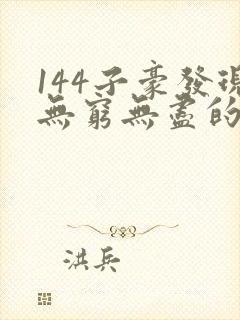 144子豪發現
無窮無盡的
洪兵